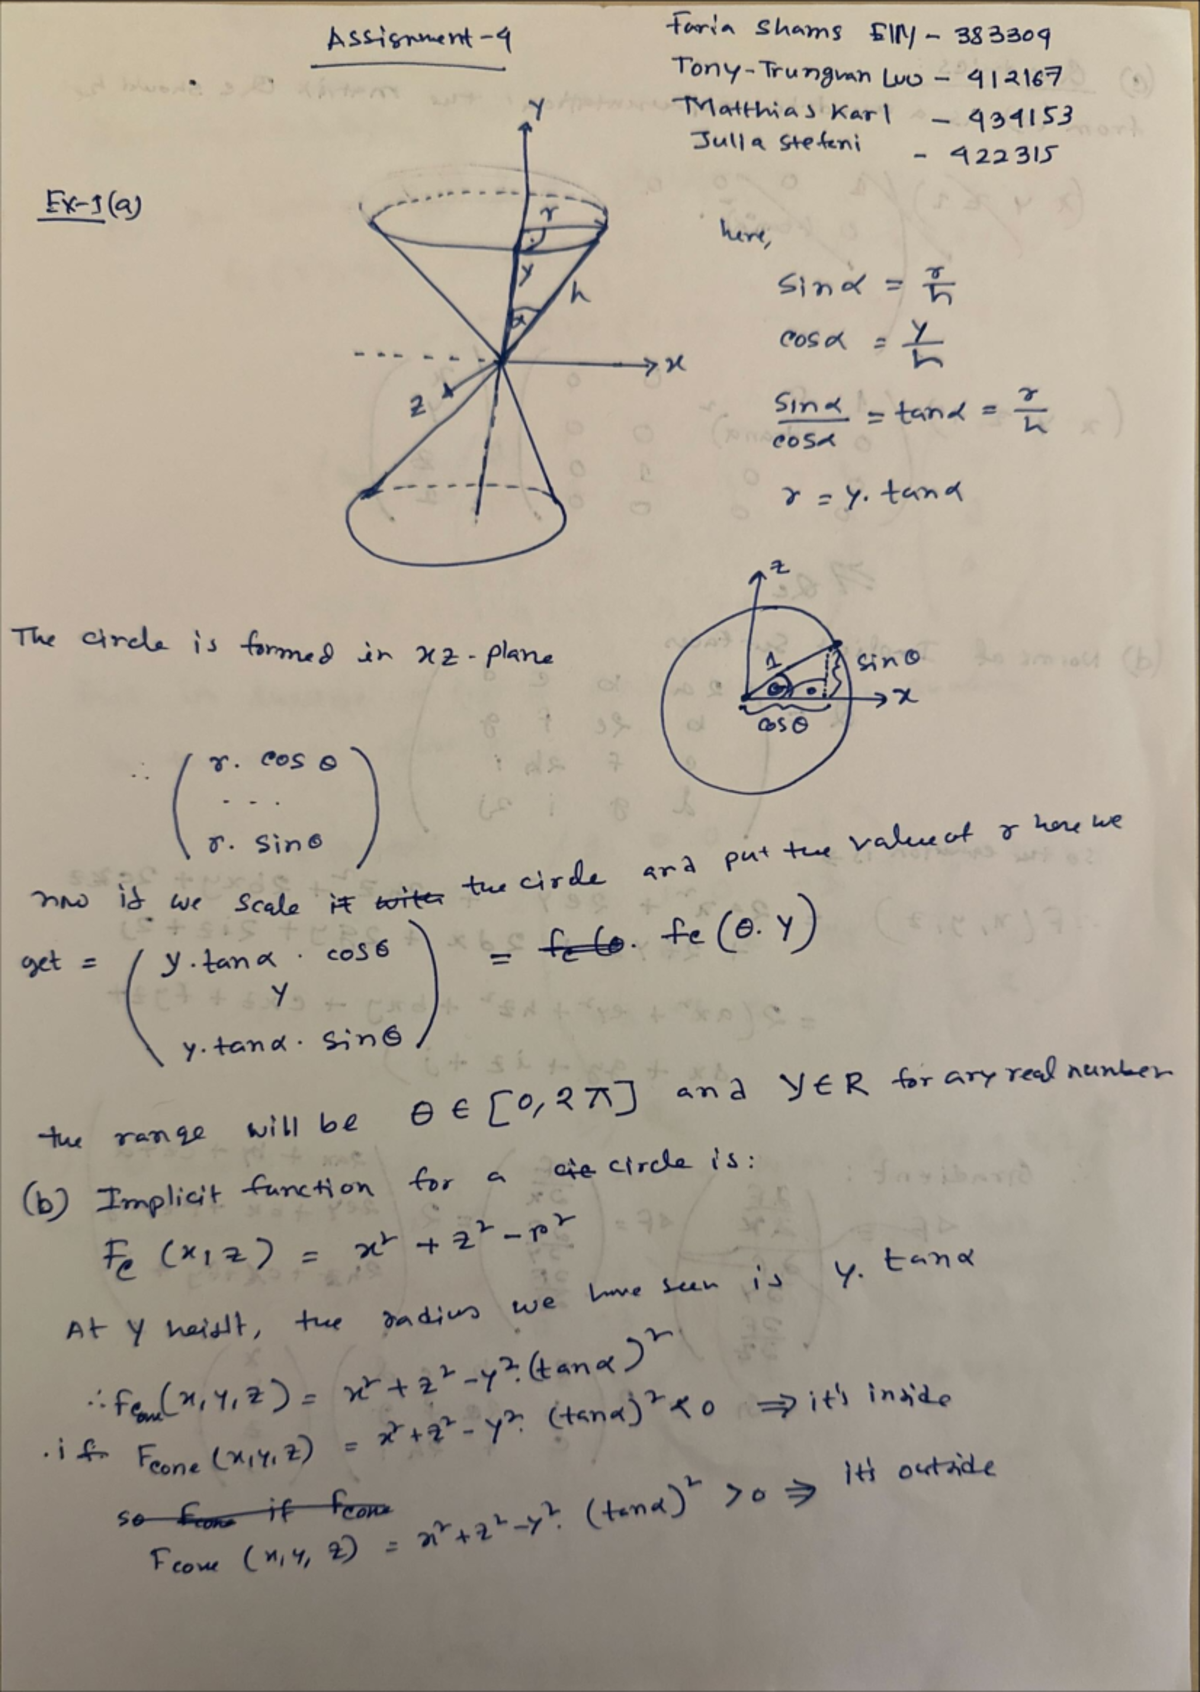 Assignment-4
Faria Shams Elly - 383309
Tony-Trungvan Luu - 412167
Matthias Karl - 434153
Julia Stefani - 422315
Ex-1(a)
y
r
y
h
α
x
z
here,
sinα = r/h
cosα = y/h
sinα/cosα = tanα = r/h
r = y. tanα
The circle is formed in xz-plane
z
1
sinθ
θ
x
cosθ
∴ ( r. cos θ
. . .
r. sinθ )
now if we scale the circle and put the value of r here we
get = ( y.tanα . cosθ
y
y.tanα. sinθ ) = fc (θ. y)
the range will be θ ∈ [0,2π] and y∈R for any real number
(b) Implicit function for a circle is:
Fc (x,z) = x² + z² - r²
At y height, the radius we have seen is y. tanα
∴ fcone(x,y,z) = x² + z² - y². (tanα)²
. if Fcone (x,y,z) = x²+z² - y². (tanα)² < 0 ⇒ it's inside
so fcone if fcone
Fcone (x,y,z) = x²+z²-y². (tanα)² >0 ⇒ it's outside